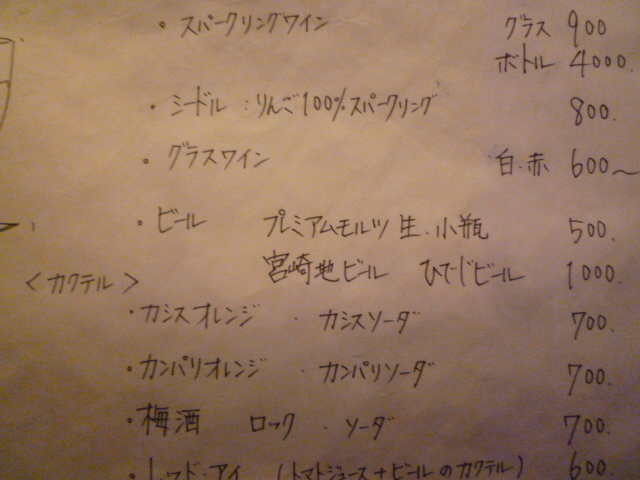 ・スパークリングワイン グラス 900
ボトル 4000.
・シードル：りんご100%スパークリング 800.
・グラスワイン 白・赤 600〜
・ビール プレミアムモルツ 生・小瓶 500.
宮崎地ビール ひでじビール 1000.
＜カクテル＞
・カシスオレンジ ・カシスソーダ 700.
・カンパリオレンジ ・カンパリソーダ 700.
・梅酒 ロック ・ソーダ 700.
・レッド・アイ (トマトジュース+ビールのカクテル) 600.